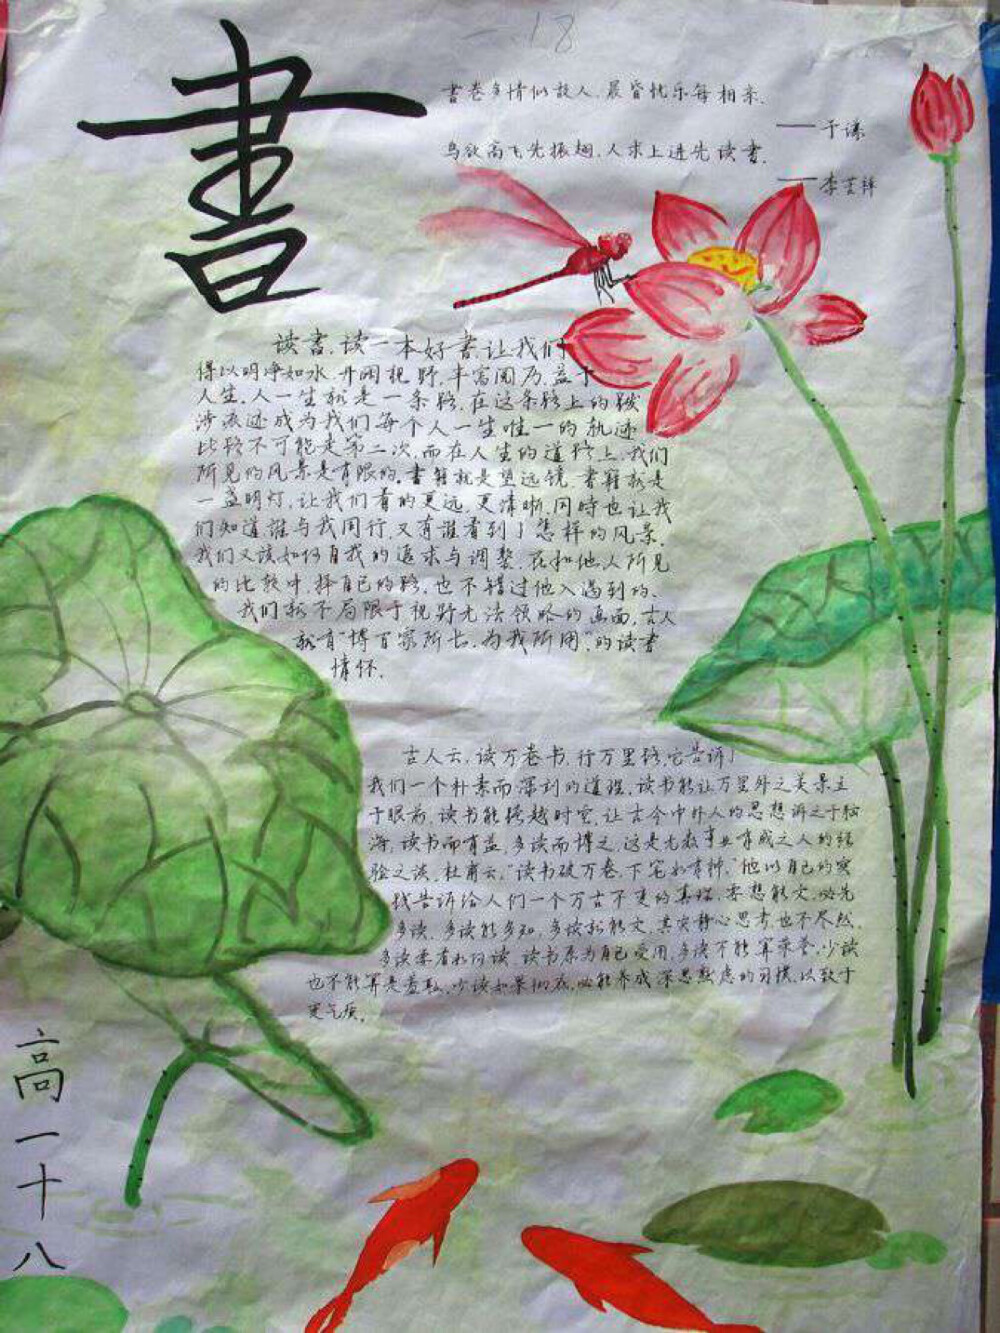 一.18
書
書卷多情似故人,晨昏忧乐每相亲.
——于谦
鸟欲高飞先振翅,人求上进先读書.
——李苦禅
读書,读一本好書,让我们
得以明净如水,开阔视野,丰富阅历,益于
人生,人一生就是一条路,在这条路上的跋
涉痕迹成为我们每个人一生唯一的轨迹
此路不可能走第二次,而在人生的道路上,我们
所见的风景是有限的.書籍就是望远镜,書籍就是
一盏明灯,让我们看的更远,更清晰.同時也让我
们知道誰与我同行,又有谁看到了怎样的风景.
我们又该如何自我的追求与调整.在和他人所见
的比较中,择自己的路,也不错过他人遇到的.
我们就不局限于视野无法领略的画面,古人
就有"博百家所长,为我所用"的读書
情怀.
古人云,读万卷书,行万里路,它告诉了
我们一个朴素而深刻的道理,读书能让万里外之美景立
于眼前,读书能穿越时空,让古今中外人的思想诉之于脑
海,读书而有益,多读而博之,这是无数事业有成之人的经
验之谈.杜甫云,"读书破万卷,下笔如有神,"他以自己的实
践告诉给人们一个万古不变的真理,要想能文,必先
多读,多读能多知,多读就能文,其实静心思考,也不尽然,
多读要看如何读,读书原为自己受用,多读不能算荣誉,少读
也不能算是羞耻,少读如果彻底,必能养成深思熟虑的习惯,以致于
变气质.
高一十八